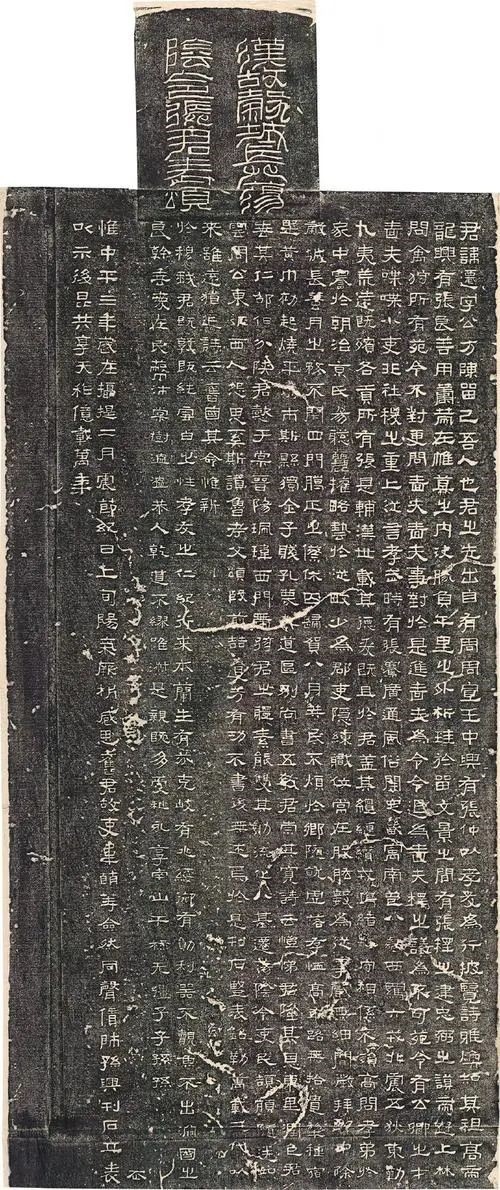 漢故穀城長蕩
陰令張君表頌
君諱遷字公方陳留己吾人也君之先出自有周周宣王中興有張仲以孝友為行披覽詩雅煥知其祖高帝
龍興有張良善用籌策在帷幕之內決勝負千里之外析珪於留文景之間有張釋之建忠弼之謨帝遊上林
問禽狩所有苑令不對更問嗇夫嗇夫事對於是進嗇夫為令令退為嗇夫釋之議為不可苑令有公卿之才
嗇夫喋喋小吏非社稷之重上從言孝武時有張騫廣通風俗開定畿寓南苞八蠻西羈六戎北震五狄東勤
九夷荒遠既殯各貢所有張是輔漢世載其德爰既且於君蓋其繵縺纘戎鴻緒牧守相係不殞高問孝弟於
家中謇於朝治京氏易聰麗權略藝於從畋少為郡吏隱練職位常在股肱數為從事聲無細聞徵拜郎中除
穀城長蠶月之務不閉四門臘正之僚休囚歸賀八月筭民不煩於鄉隨就虛落存恤高年路無拾遺犁種宿
野黃巾初起燒平城市斯縣獨全子賤孔蔑其道區別尚書五教君崇其寬詩云愷悌君隆其恩東里潤色君
垂其仁邵伯分陝君懿于棠晉陽珮瑋西門帶弦君之體素能雙其勛流化八基遷蕩陰令吏民頡頏隨送如
雲周公東征西人怨思奚斯讚魯考父頌殷前喆遺芳有功不書後無述焉於是刊石豎表銘勒萬載三代以
來雖遠猶近詩云舊國其命惟新
於穆我君既敦既純雪白之性孝友之仁紀行來本蘭生有芬克岐有兆綏御有勛利器不覿魚不出淵國之
良幹垂愛在民蔽沛棠樹溫溫恭人乾道不繆唯淑是親既多受祉永享南山干祿无疆子子孫孫
惟中平三年歲在攝提二月震節紀日上旬陽氣厥析感思舊君故吏韋萌等僉然同聲賃師孫興刊石立表
以示後昆共享天祚億載萬年